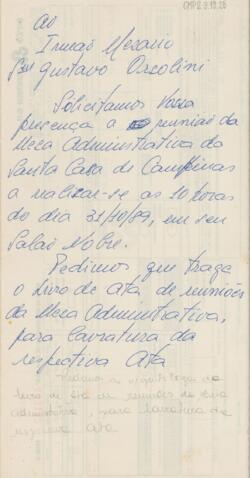 CMP2.3.19.28
Ao
Irmão Mesario
Snr Gustavo Orsolini
Solicitamos Vossa
presença a reunião da
Mesa Administrativa da
Santa Casa de Campinas
a realizar-se as 10 horas
do dia 31/10/89, em seu
Salão Nobre.
Pedimos que traga
o livro de ata de reuniões
da Mesa Administrativa,
para lavratura da
respectiva Ata
livro de ata de reuniões da Mesa
administrativa, para lavratura da
respectiva Ata